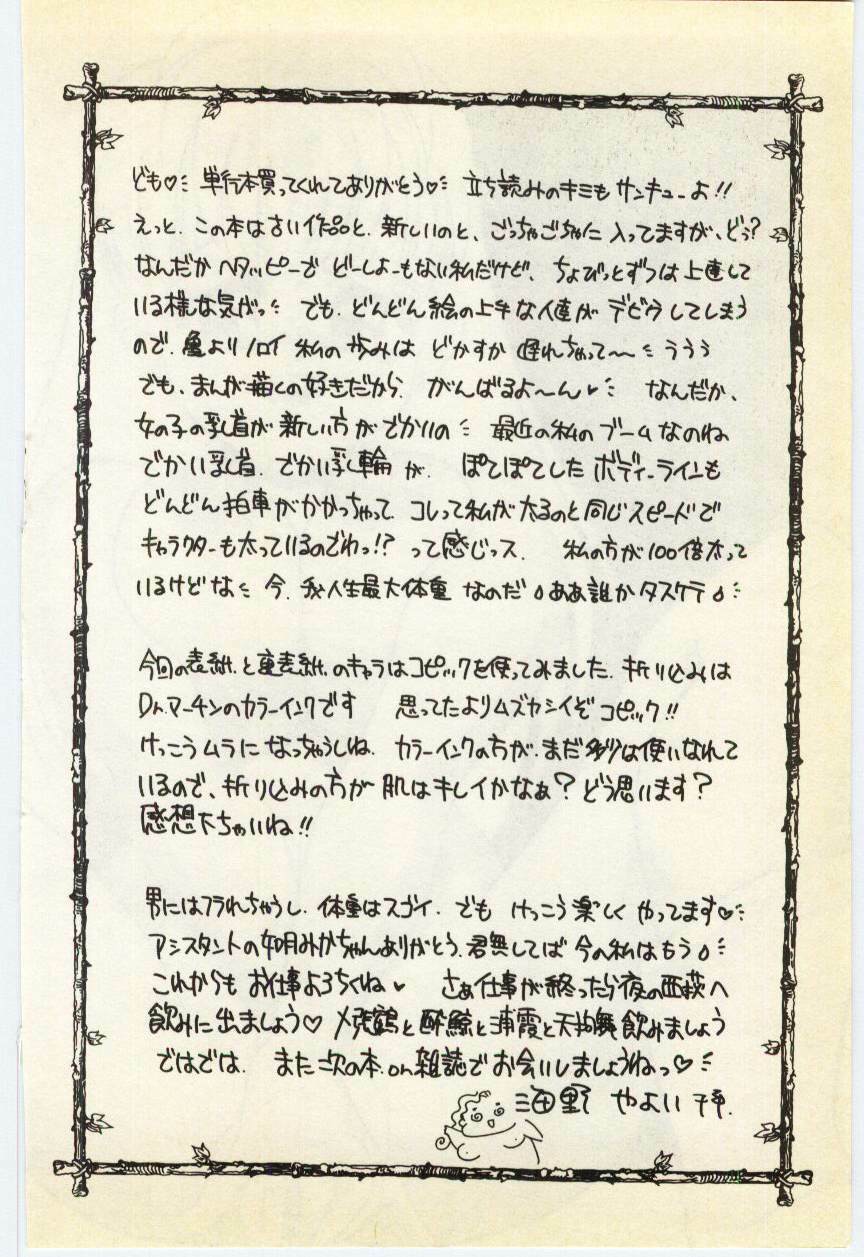 ども♡ 単行本買ってくれてありがとう♡ 立ち読みのキミもサンキューよ!!
えっと、この本は古い作品と、新しいのと、ごっちゃごちゃに入ってますが、どぅ?
なんだかヘタッピーでどーしよーもない私だけど、ちょびっとずつは上達して
いる様な気がっ でも、どんどん絵の上手な人達がデビウしてしまう
ので、亀よりノロイ私の歩みはどかすか遅れちゃって〜 ううう
でも、まんが描くの好きだから、がんばるよ〜ん♥ なんだか、
女の子の乳首が新しい方がでかいの 最近の私のブームなのね
でかい乳首、でかい乳輪が、ぽてぽてしたボディーラインも
どんどん拍車がかかっちゃって、コレって私が太るのと同じスピードで
キャラクターも太っているのでわっ!? って感じっス、私の方が100倍太って
いるけどな 今、我人生最大体重なのだ ああ誰かタスケテ
今回の表紙と裏表紙のキャラはコピックを使ってみました、折り込みは
Dr.マーチンのカラーインクです 思ってたよりムズカシイぞコピック!!
けっこうムラになっちゃうしね、カラーインクの方が、まだ多少は使いなれて
いるので、折り込みの方が肌はキレイかなぁ? どう思います?
感想下ちゃいね!!
男にはフラれちゃうし、体重はスゴイ、でもけっこう楽しくやってます♡
アシスタントの如月みかちゃんありがとう、君無してば今の私はもう
これからもお仕事よろちくね♥ さぁ仕事が終ったら夜の西荻へ
飲みに出ましょう♡ 〆張鶴と酔鯨と浦霞と天狗舞飲みましょう
ではでは、また次の本、on雑誌でお会いしましょうねっ♡
海野 やよい 拝.